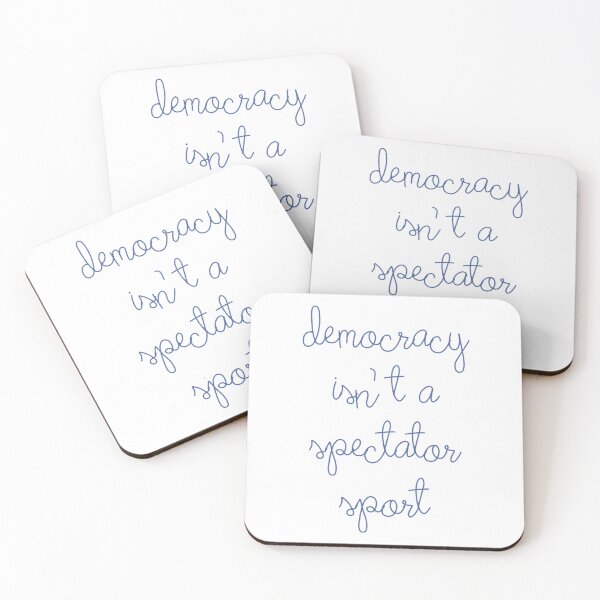 democracy
isn't a
democracy
isn't a
spectator
democracy
isn't a
spectato
sport
democracy
isn't a
spectator
sport